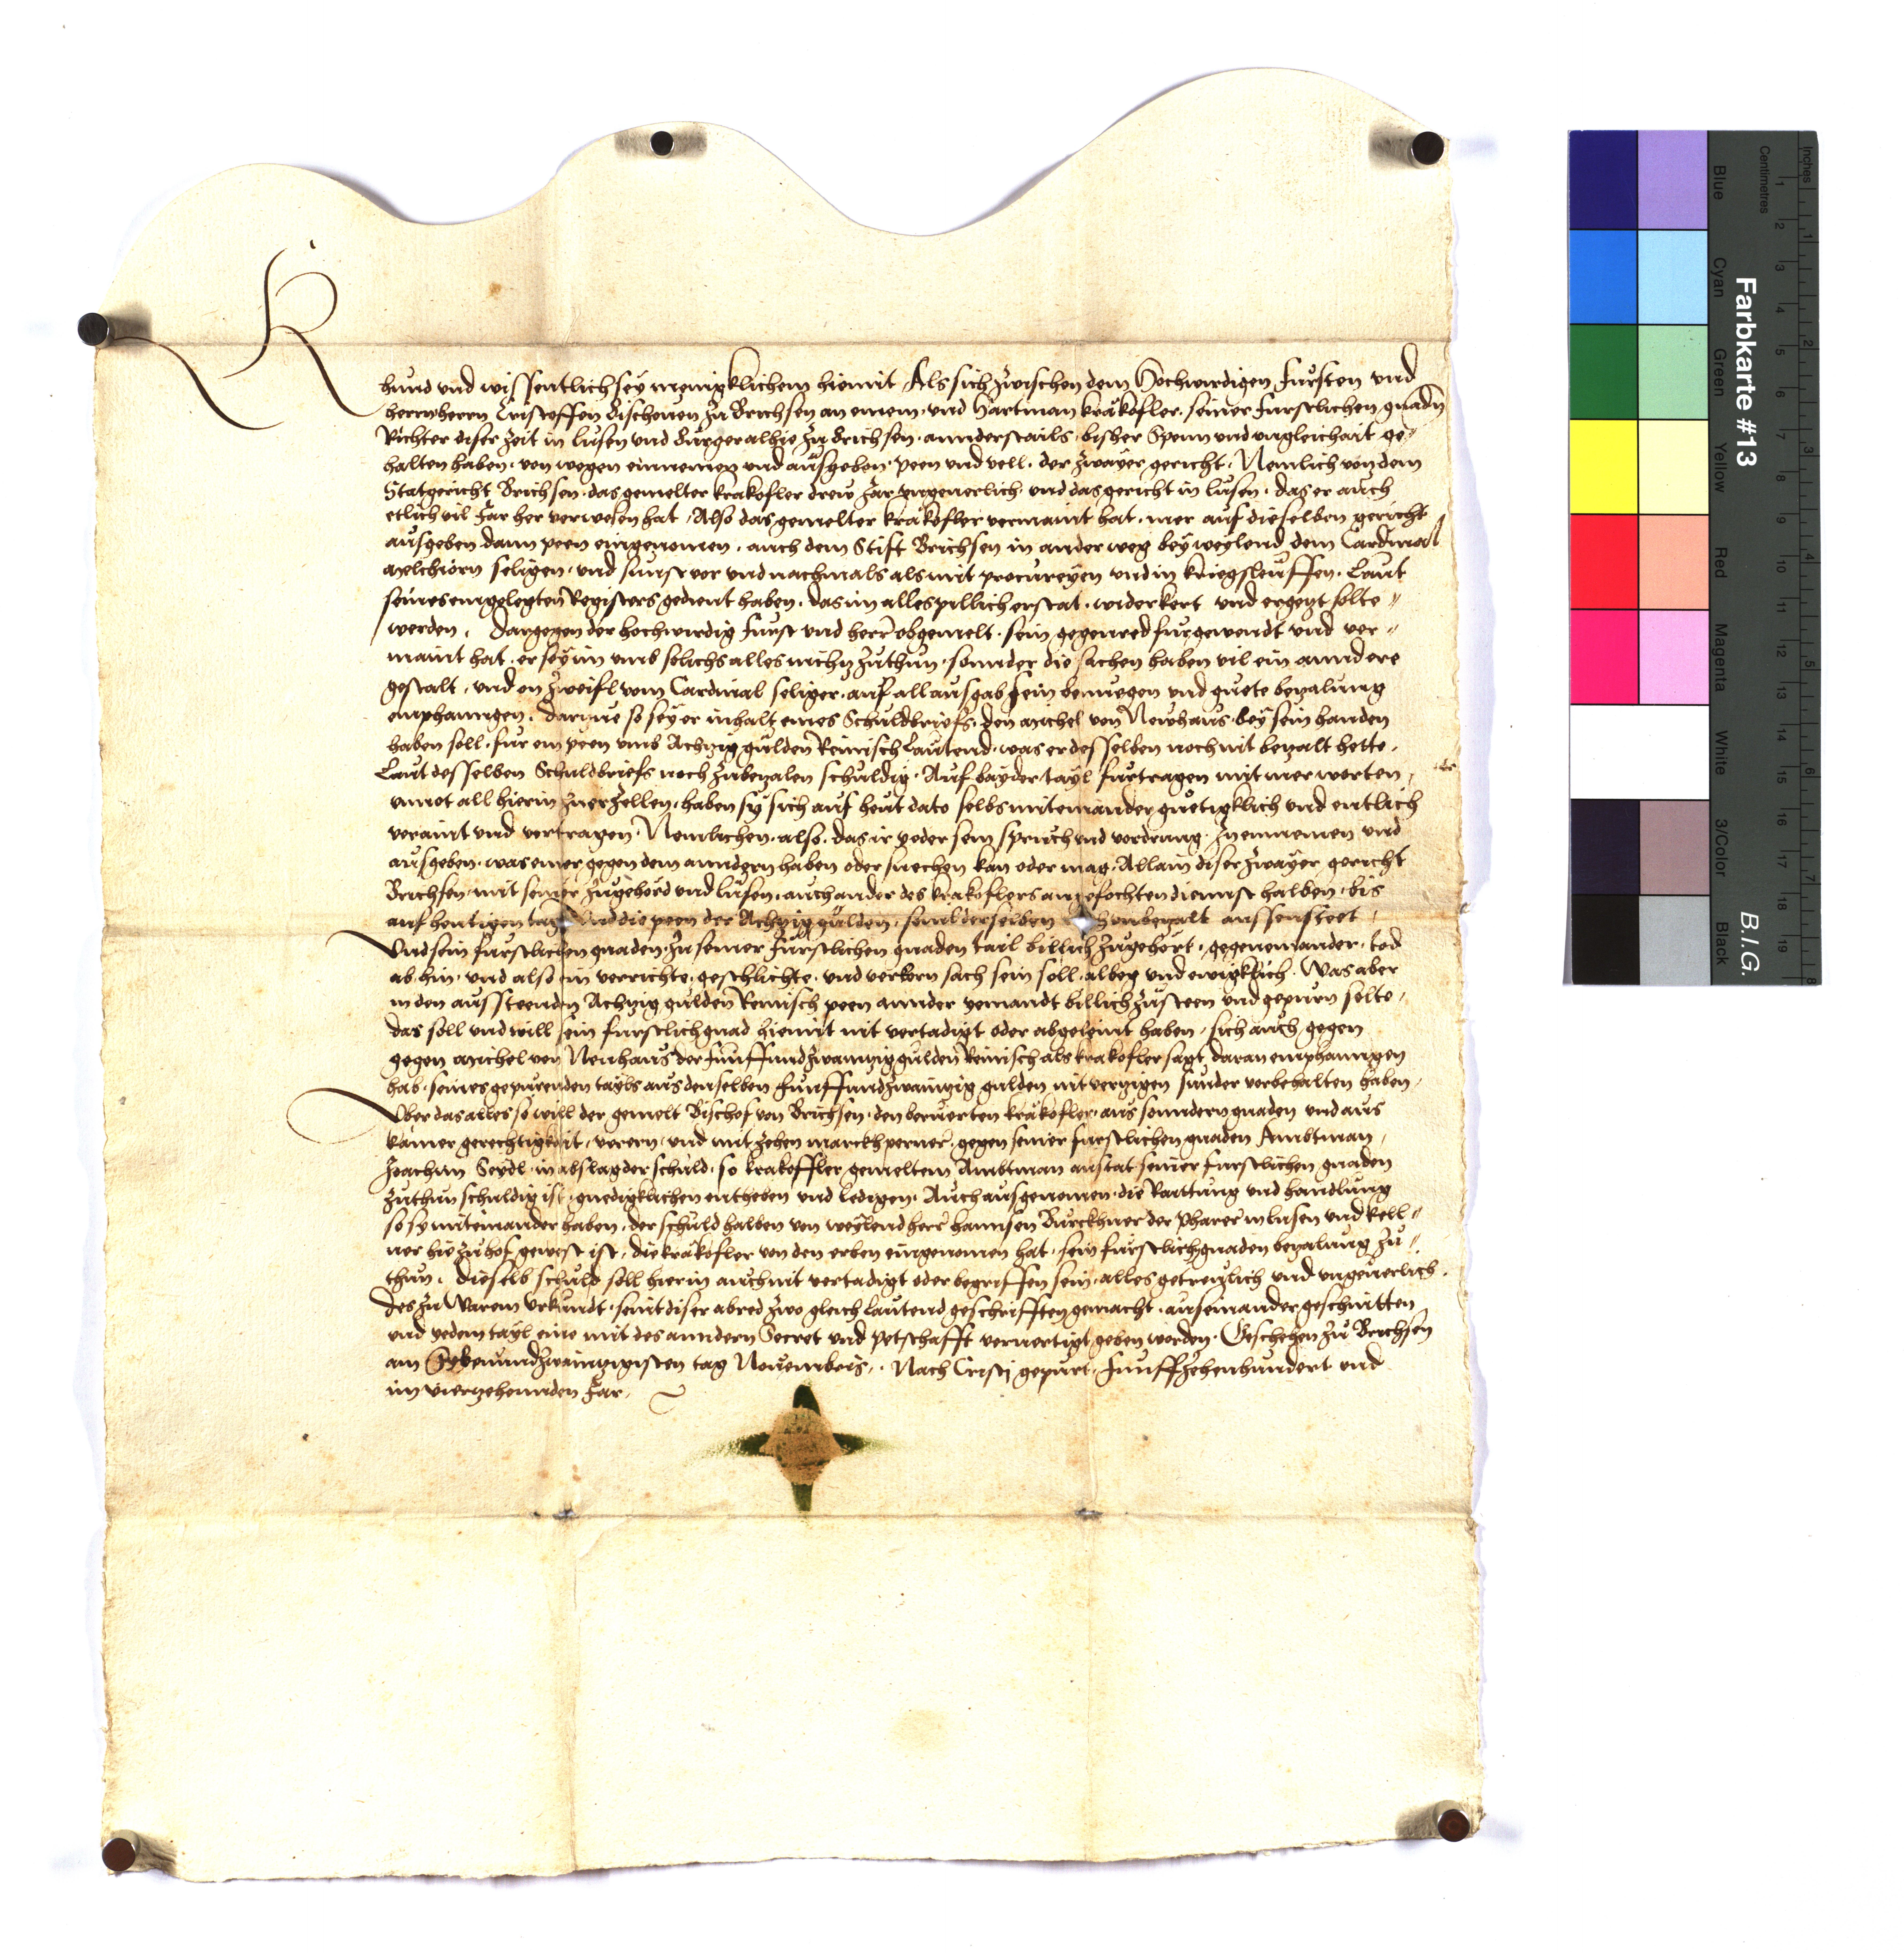 Khund und wissentlich sey menigklichem hiemit Als sich zwischen dem Hochwirdigen Fursten und
herrn herrn Cristoffen Bischoven zu Brichsen an einem, und Hartman krakofler, seiner furstlichen gnadn
Richter diser zeit in Lusen und Burger alhie zu Brichsen, annderstails, bisher Spenn und ungleichait ge„
halten haben, von wegen einnemen und ausgeben, peen und vell, der zwayer gericht, Nemlich von dem
Statgericht Brichsen, das gemelter krakofler drew Jar ungeverlich, und das gericht in lusen, das er auch
etlich vil Jar her verwesen hat, Also das gemelter krakofler vermaint hat, mer auf dieselben gericht
ausgeben dann peen eingenomen, auch dem Stift Brichsen in ander weg bey weylend dem Cardinal
Melchiorn seligen, und sunst vor und nachmals als mit procureyen und in kriegsleuffen, Laut
seines eingelegten Registers gedient haben, das im alles pillich erstat, widerkert und ergetzt solte„
werden, Dargegen der hochwirdig Furst und herr obgemelt, sein gegenred furgewendt und ver„
maint hat, er sey im umb solichs alles nichtz zuthun, sonnder die sachen haben vil ein anndere
gestalt, und on zweifl vom Cardinal seliger, auf all ausgab sein benuegen und guete bezalung
emphanngen, Darzue so sey er inhalt eines Schuldbriefs, den Michel von Newhaus, bey sein handen
haben soll, fur ein peen umb Achtzig gulden Reinisch Lautend, was er desselben noch nit bezalt hette,
Laut desselben Schuldbriefs noch zubezalen schuldig, Auf bayder tayl furtragen mit mer worten,
unnot all hierin zuerzellen, haben sy sich auf heut dato selbs miteinander guetigklich und entlich
veraint und vertragen, Nemlichen, also, das ir yeder sein spruch und vordrung, zu einnemen und
ausgeben, was einer gegen dem anndern haben oder suechen kan oder mag, Allain diser zwayer gericht
Brichsen, mit seiner zugehord und lusen, auch ander des krakoflers angefochten diennst halben, bis
auf heutigen tag und die peen der Achtzig gulden, sovil derselben unbezalt aussensteet,
Und sein furstlichen gnaden, zu seiner furstlichen gnaden tail billich zugehort, gegeneinander, tod
ab, hin, und also ein verrichte, geschlichte, und verkorn sach sein soll, albeg und ewigklich, Was aber
in den aussteenden Achtzig gulden Reinisch peen annder yemandt billich zusteen und gepurn solte,
das soll und will sein furstlich gnad hiemit nit vertadigt oder abgeleint haben, sich auch gegen
gegen Michel von Neuhaus der funffundzwaintzig gulden Reinisch als krakofler sagt, daran emphanngen
hab, seines gepurenden tayls aus denselben funffundzwaintzig gulden nit verzigen sunder vorbehalten haben,
Uber das alles so will der gemelt Bischof von Brichsen, den beruerten krakofler, aus sonndern gnaden und aus
kamer gerechtigkeit, verern, und mit zehen marckh perner, gegen seiner furstlichen gnaden Ambtman,
Joachim Seydl, in abslag der schuld, so krakoffler gemeltem Ambtman anstat seiner furstlichen gnaden
zuthun schuldig ist, gnedigklichen entheben und ledigen, Auch ausgenomen, die Raittung und handlung
so sy miteinander haben, der schuld halben von weylend herr hannsen Burckhner der Pharer in lusen und kell„
ner hie zu hof gewest ist, die krakofler von den erben eingenomen hat, sein furstlich gnaden bezalung zu„
thun, dieselb schuld soll hierin auch nit vertadigt oder begriffen sein, alles getreulich und ungeverlich,
Des zu Warem Urkundt, seint diser abred zwo gleich Lautend geschrifften gemacht, auseinander geschnitten
und yedem tayl eine mit des anndern Secret und petschafft ververtigt geben worden, Geschehen zu Brichsen
am Sybenundzwaintzigisten tag Novembris, Nach Cristi gepurt, Funffzehenhundert und
im viertzehennden Jar,
Farbkarte #13
B.I.G.
Inches
Centimetres
Blue
Cyan
Green
Yellow
Red
Magenta
White
3/Color
Black
1 2 3 4 5 6 7 8 9 10 11 12 13 14 15 16 17 18 19
1 2 3 4 5 6 7 8